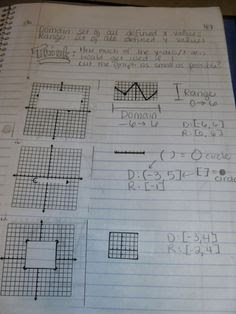 Domain: set of all defined x values
Range: set of all defined y values
How much of the y-axis/x-axis
would get used if I
cut the graph as small as possible?
Range
0→6
Domain
-6→6
D: [-6, 6]
R: [0, 6]
( ) = ○ circle
D: (-3, 5]
[ ] = ● circle
R: [-1]
D: [-3, 4]
R: [-2, 4]